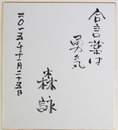 合言葉は
勇気
二〇一五年十一月二十五日
森詠